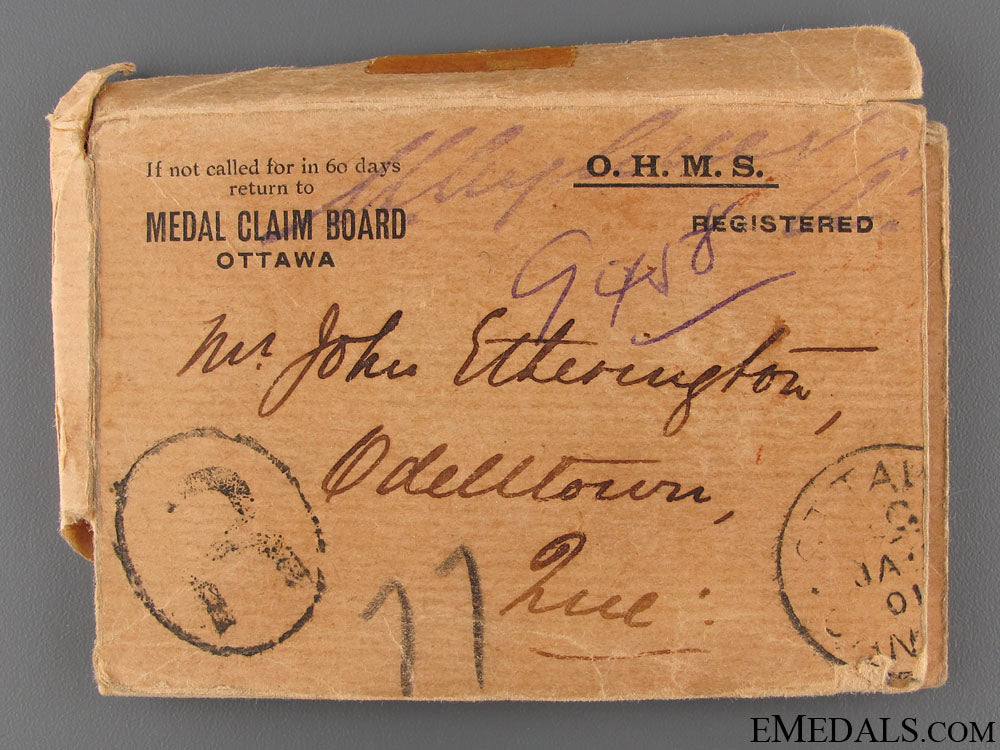 If not called for in 60 days
return to
MEDAL CLAIM BOARD
OTTAWA
O. H. M. S.
REGISTERED
9458
Mr. John Etherington,
Odelltown,
Que:
R
77
OTTAWA
JA
01
EMEDALS.COM